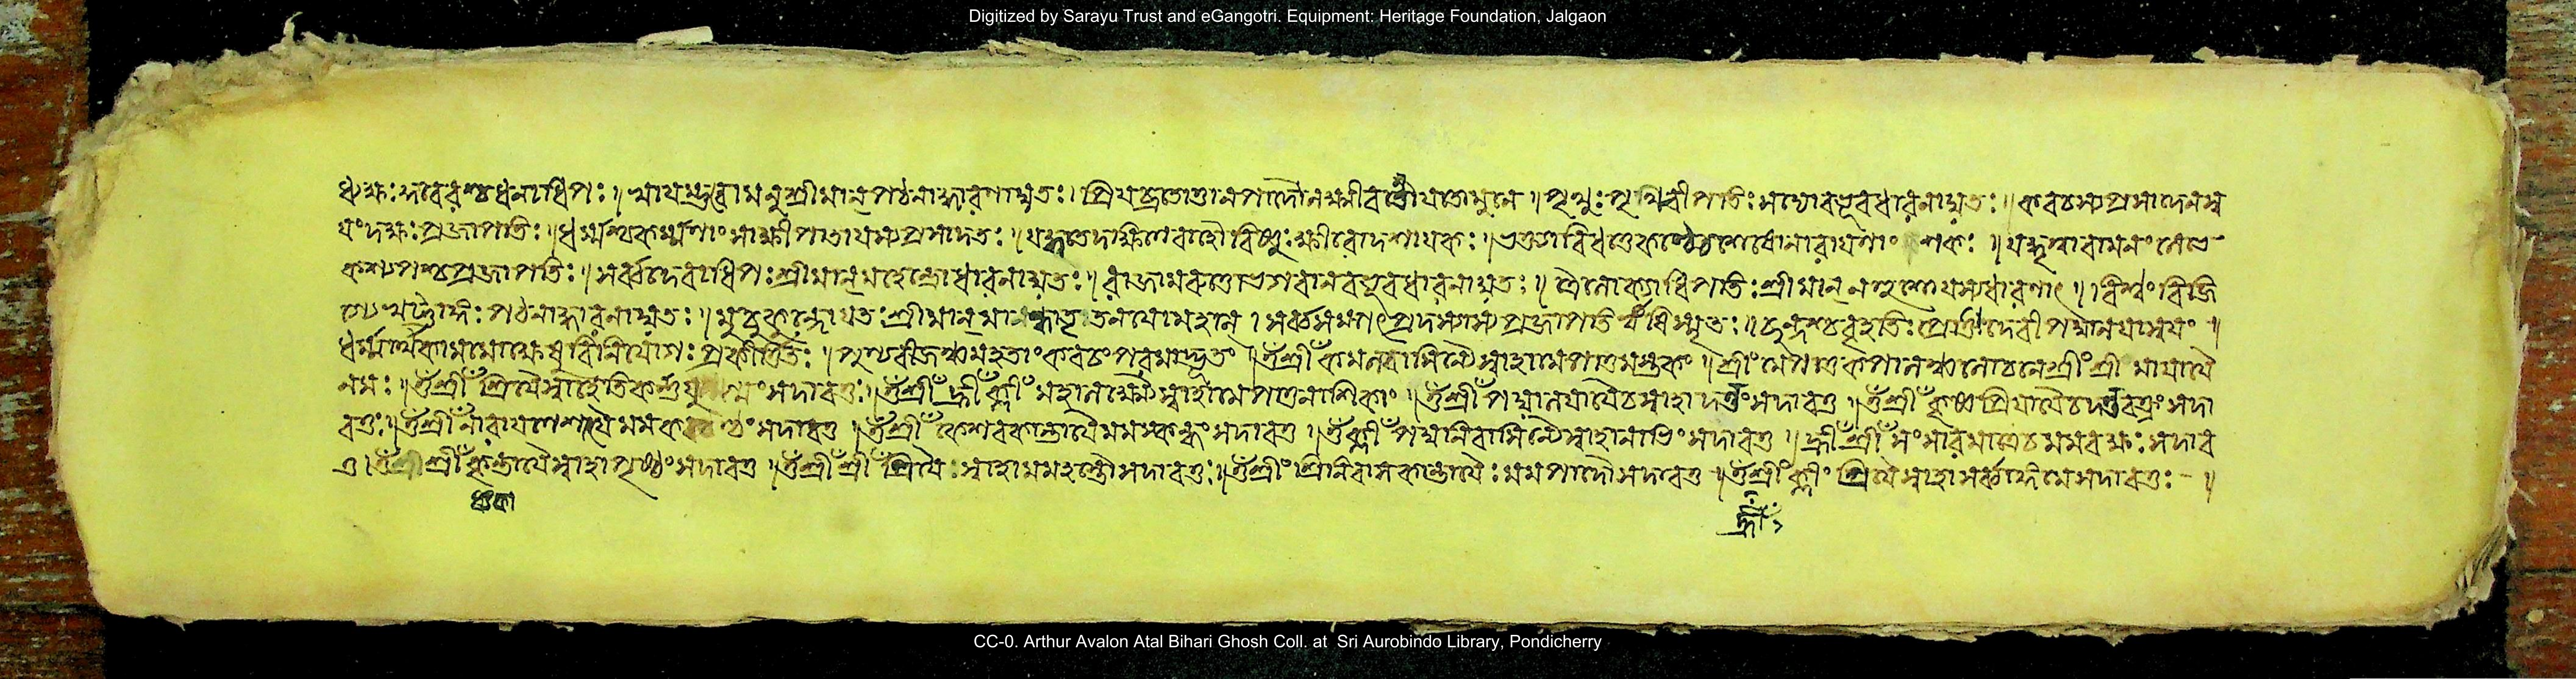 Digitized by Sarayu Trust and eGangotri. Equipment: Heritage Foundation, Jalgaon
ধ্যক্ষঃ কুবেরশ্চ ধনাধিপঃ। স্বায়ম্ভুবো মনু শ্রীমান্ পঠনাদ্ধারণাদ্যতঃ। প্রিয়ব্রতোত্তানপাদৌ লক্ষ্মীবন্তৌ যতো মুনে॥ পৃথুঃ পৃথ্বিবীপতিঃ সদ্যো বভূব ধারনাদ্যতঃ॥ কবচস্য প্রসাদেন স্ব
যংদক্ষঃ প্রজাপতিঃ॥ ধর্ম্মশ্চ কর্ম্মণাং সাক্ষী পাতা যস্য প্রসাদতঃ॥ যদ্ধৃত্বা দক্ষিণে বাহৌ বিষ্ণুঃ ক্ষীরোদশায়কঃ॥
কশ্যপশ্চ প্রজাপতিঃ॥ সর্ব্বদেবাধিপঃ শ্রীমান্ মহেন্দ্রো ধারনাদ্যতঃ॥ রাজা মরুত্তো ভগবান্ বভূব ধারনাদ্যতঃ॥ ত্রৈলোক্যাধিপতিঃ শ্রীমান্ নহুশো যস্য ধারণাৎ॥ বিশ্বং বিজি
পঠনাদ্ধারনাদ্যতঃ॥ মুচুকুন্দো যতঃ শ্রীমান্ মান্ধাতৃতনয়ো মহান্। সর্ব্বসম্পৎপ্রদস্যাস্য প্রজাপতি ঋষি স্মৃতঃ॥ ছন্দশ্চ বৃহতিঃ প্রোক্তা দেবী পদ্মালয়া স্বয়ং॥
ধর্ম্মার্থকামমোক্ষেষু বিনিযোগঃ প্রকীর্ত্তিতঃ॥ পুণ্যবীজঞ্চ মহতাং কবচং পরমাদ্ভুতং॥ ওঁ শ্রীঁ কমলবাসিন্যৈ স্বাহা মে পাতু মস্তকং॥ শ্রীং মে পাতু কপালঞ্চ লোচনে শ্রীং শ্রী মায়ায়ৈ
নমঃ॥ ওঁ শ্রীঁ শ্রিয়ৈ স্বাহেতি কর্ণযু গ্মং সদাবতুঃ॥ ওঁ শ্রীঁ হ্রীঁ ক্লীঁ মহালক্ষ্মৈ স্বাহা মে পাতু নাশিকাং॥ ওঁ শ্রীঁ পদ্মালয়ায়ৈ চ স্বাহা দন্তং সদাবতু॥ ওঁ শ্রীঁ কৃষ্ণপ্রিয়ায়ৈ চ দন্তরন্ধ্রং সদা
বতু॥ ওঁ শ্রীঁ নারায়ণেশায়ৈ মম কণ্ঠং সদাবতু॥ ওঁ শ্রীঁ কেশবকান্তায়ৈ মম স্কন্ধং সদাবতু॥ ওঁ ক্লীঁ পদ্মনিবাসিন্যৈ স্বাহা নাভিং সদাবতু॥ হ্রীঁ শ্রীঁ সংসারমাত্রে চ মম বক্ষঃ সদাব
তু। ওঁ শ্রীঁ শ্রীঁ কৃষ্ণকান্তায়ৈ স্বাহা পৃষ্ঠং সদাবতু॥ ওঁ শ্রীঁ শ্রীঁ শ্রিয়ৈঃ স্বাহা মম হস্তৌ সদাবতুঃ॥ ওঁ শ্রীং শ্রিনিবাসকান্তায়ৈঃ মম পাদৌ সদাবতু॥ ওঁ শ্রীঁ ক্লীং শ্রিয়ৈ স্বাহা সর্ব্বাঙ্গ মে সদাবতুঃ॥
হ্রীঁ
CC-0. Arthur Avalon Atal Bihari Ghosh Coll. at Sri Aurobindo Library, Pondicherry